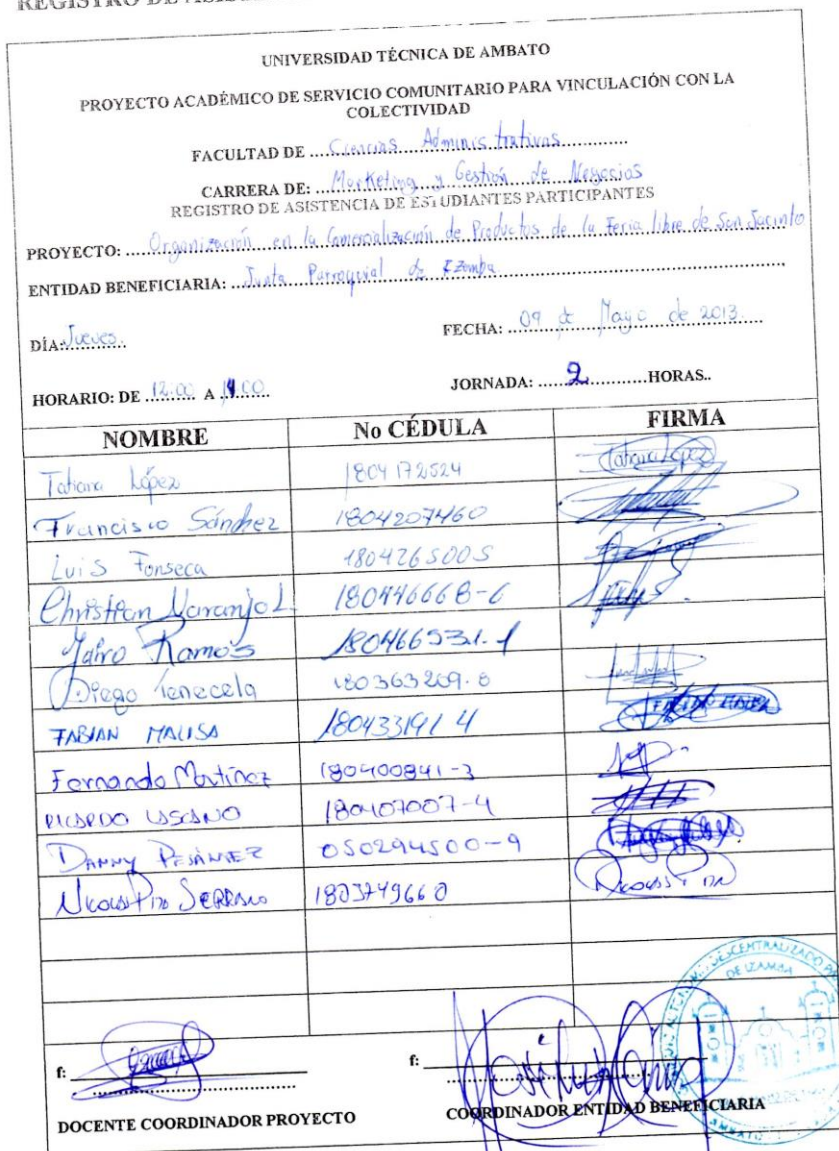 REGISTRO DE
UNIVERSIDAD TÉCNICA DE AMBATO
PROYECTO ACADÉMICO DE SERVICIO COMUNITARIO PARA VINCULACIÓN CON LA
COLECTIVIDAD
FACULTAD DE ...Ciencias Administrativas...
CARRERA DE: ...Marketing y Gestión de Negocios
REGISTRO DE ASISTENCIA DE ESTUDIANTES PARTICIPANTES
PROYECTO: ...Organización en la Comercialización de Productos de la Feria libre de San Jacinto
ENTIDAD BENEFICIARIA: ...Junta Parroquial de Izamba...
DÍA: Jueves. FECHA: ...09 de Mayo de 2013.
HORARIO: DE 12:00 A 14:00 JORNADA: ...2...HORAS..
NOMBRE No CÉDULA FIRMA
Tatiana López 1804172524 Tatiana López
Francisco Sánchez 1804207460
Luis Fonseca 1804265005
Christian Naranjo L 180446668-6
Jairo Ramos 180466531-1
Diego Tenecela 180363269-8
FABIAN MALISA 180433191 4 FABIAN MALISA
Fernando Martínez 180400841-3
RICARDO LASCANO 180407007-4
DANNY PESÁNTEZ 050294500-9
Nicolas Pino Serrano 1803749660
f: f:
DOCENTE COORDINADOR PROYECTO COORDINADOR ENTIDAD BENEFICIARIA
DESCENTRALIZADO
DE IZAMBA
AMBATO